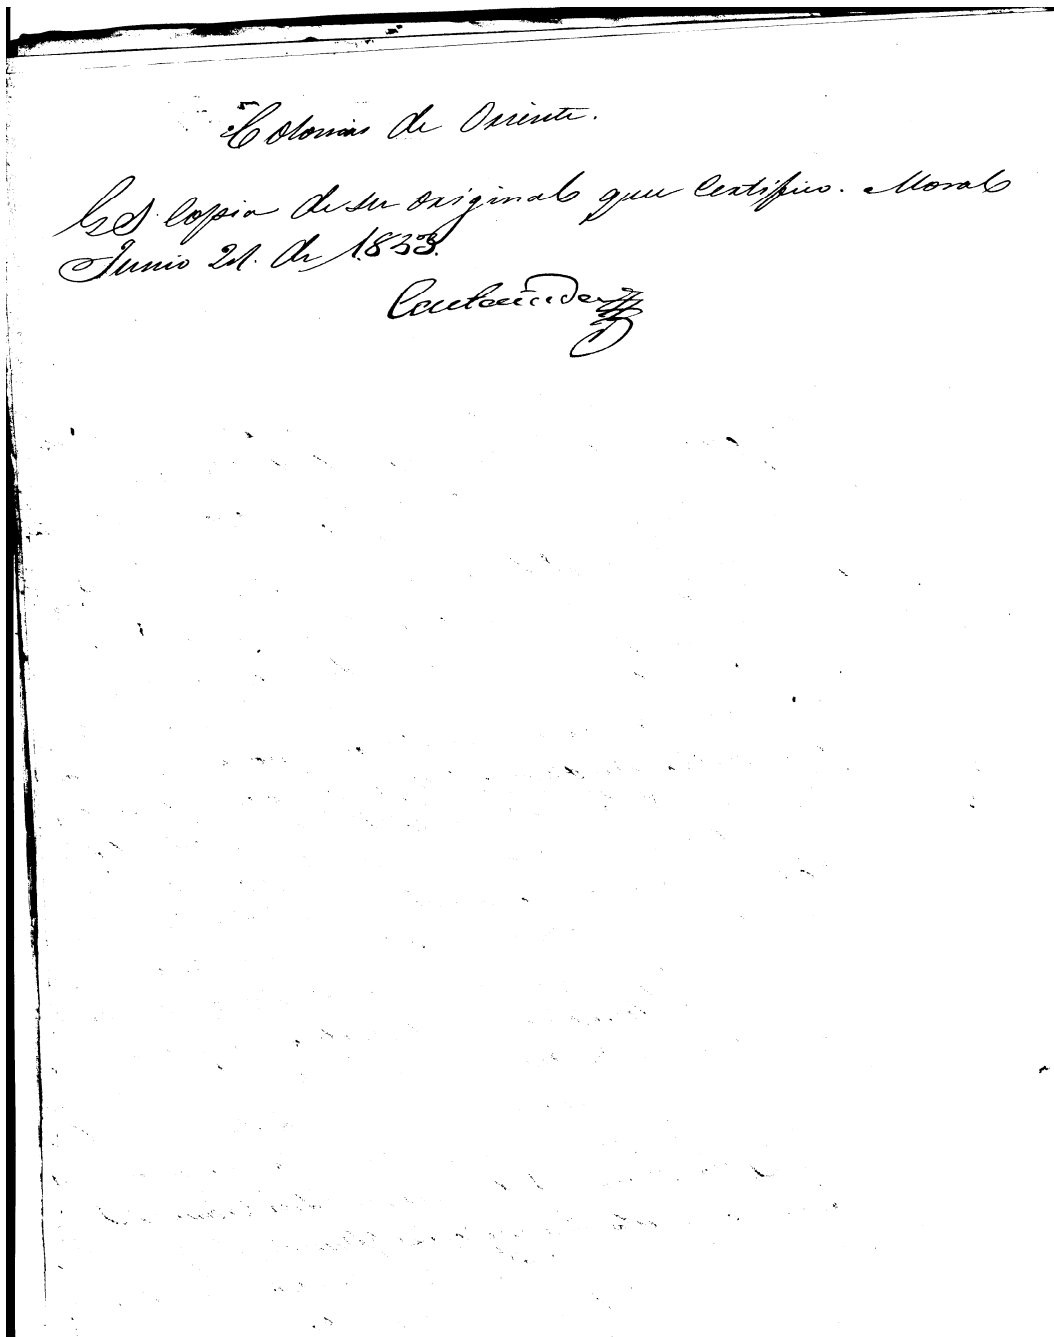 Colonias de Oriente.
Es copia de su original que Certifico. Moral
Junio 21. de 1833.
Castañeda